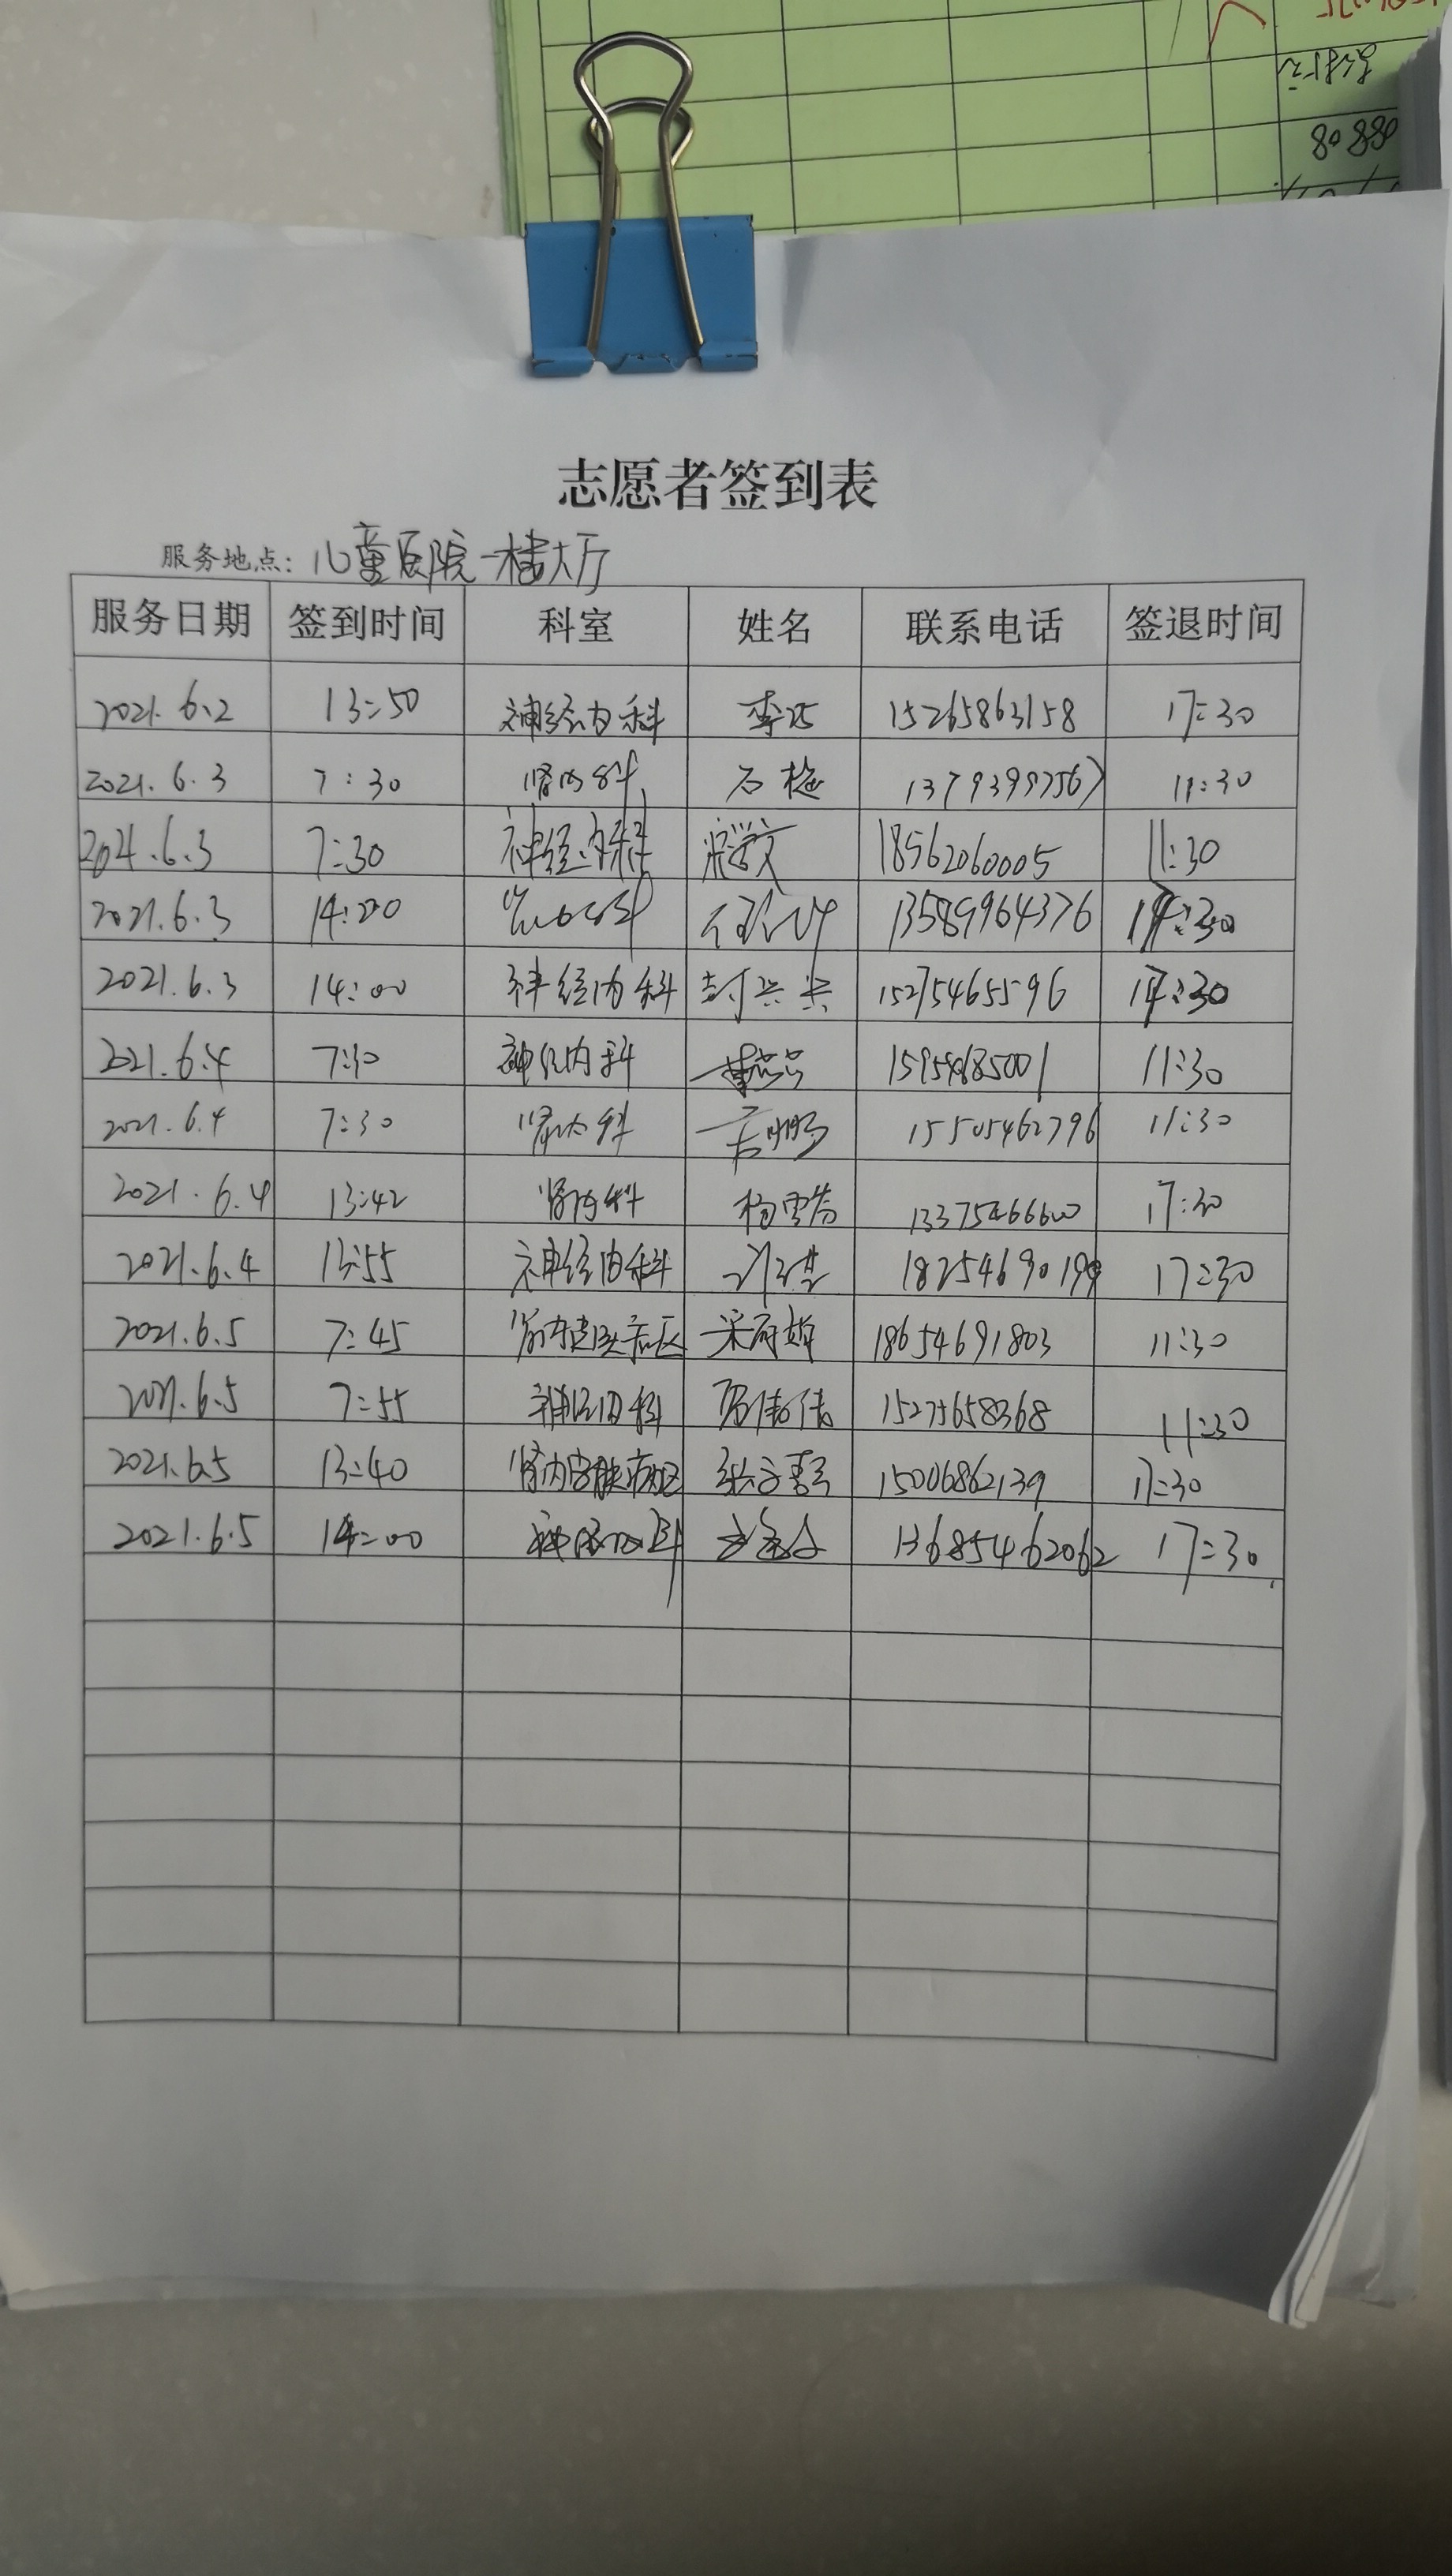 80880
志愿者签到表
服务地点：儿童医院一楼大厅
服务日期 签到时间 科室 姓名 联系电话 签退时间
2021.6.2 13:50 神经内科 李巧 15265863158 17:30
2021.6.3 7:30 肾内科 石梅 13793997567 11:30
2021.6.3 7:30 神经内科 18562060005 11:30
2021.6.3 14:00 13589964376 17:30
2021.6.3 14:00 神经内科 封兴兴 15275465596 17:30
2021.6.4 7:30 神经内科 15954685001 11:30
2021.6.4 7:30 肾内科 15505462796 11:30
2021.6.4 13:42 肾内科 杨雪 13375466600 17:30
2021.6.4 13:55 神经内科 18254690199 17:30
2021.6.5 7:45 18654691803 11:30
2021.6.5 7:55 神经内科 15275658368 11:30
2021.6.5 13:40 肾内皮肤病区 15006862139 17:30
2021.6.5 14:00 神经内科 13685462062 17:30